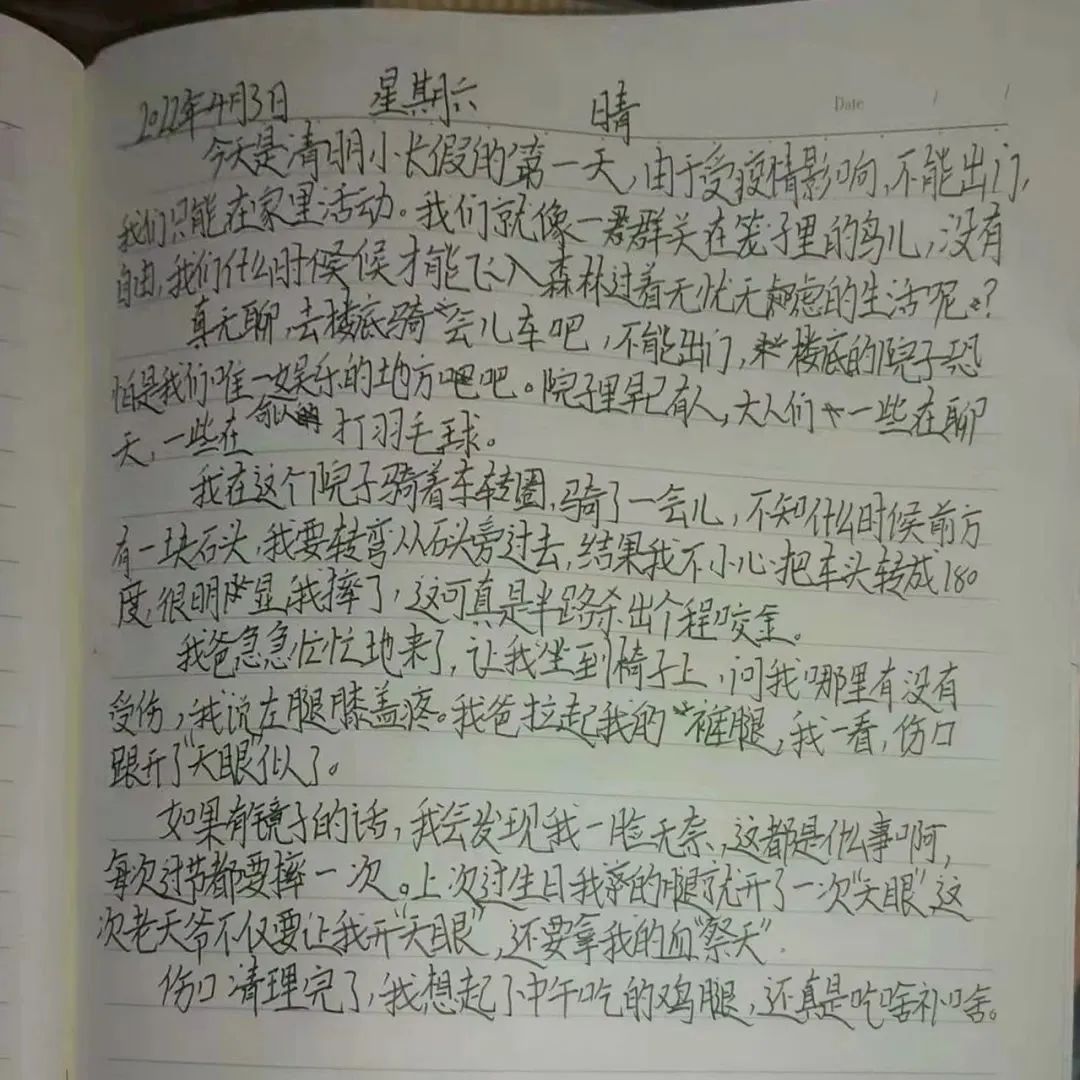 2022年4月3日 星期六 晴 Date / /
今天是清明小长假的第一天,由于受疫情影响,不能出门,
我们只能在家里活动。我们就像一群关在笼子里的鸟儿,没有
自由,我们什么时候候才能飞入森林过着无忧无虑的生活呢?
真无聊,去楼底骑会儿车吧,不能出门,楼底的院子恐
怕是我们唯一娱乐的地方吧。院子里早已有人,大人们一些在聊
天,一些在打羽毛球。
我在这个院子骑着车转圈,骑了一会儿,不知什么时候前方
有一块石头,我要转弯从石头旁过去,结果我不小心把车头转成180
度,很明显,我摔了,这可真是半路杀出个程咬金。
我爸急急忙忙地来了,让我坐到椅子上,问我哪里有没有
受伤,我说左腿膝盖疼。我爸拉起我的裤腿,我一看,伤口
跟开了"天眼"似了。
如果有镜子的话,我会发现我一脸无奈,这都是什么事啊,
每次过节都要摔一次。上次过生日我的腿就开了一次"天眼"这
次老天爷不仅要让我开"天眼",还要拿我的血"祭天".
伤口清理完了,我想起了中午吃的鸡腿,还真是吃啥补啥。